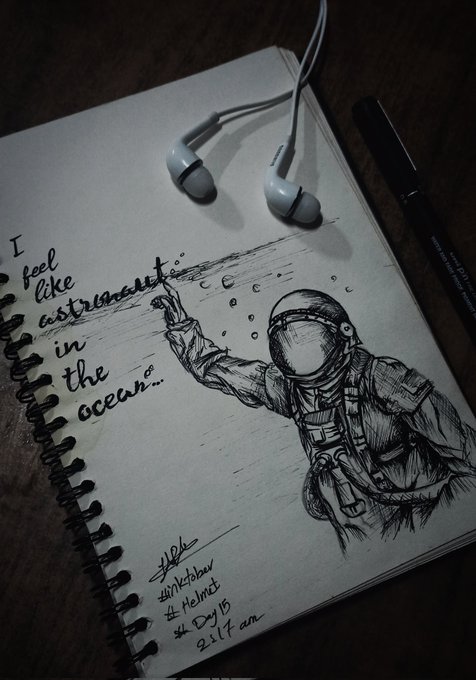 I
feel
like
astronaut
in
the
ocean...
#inktober
# Helmet
Day 15
2:17 am